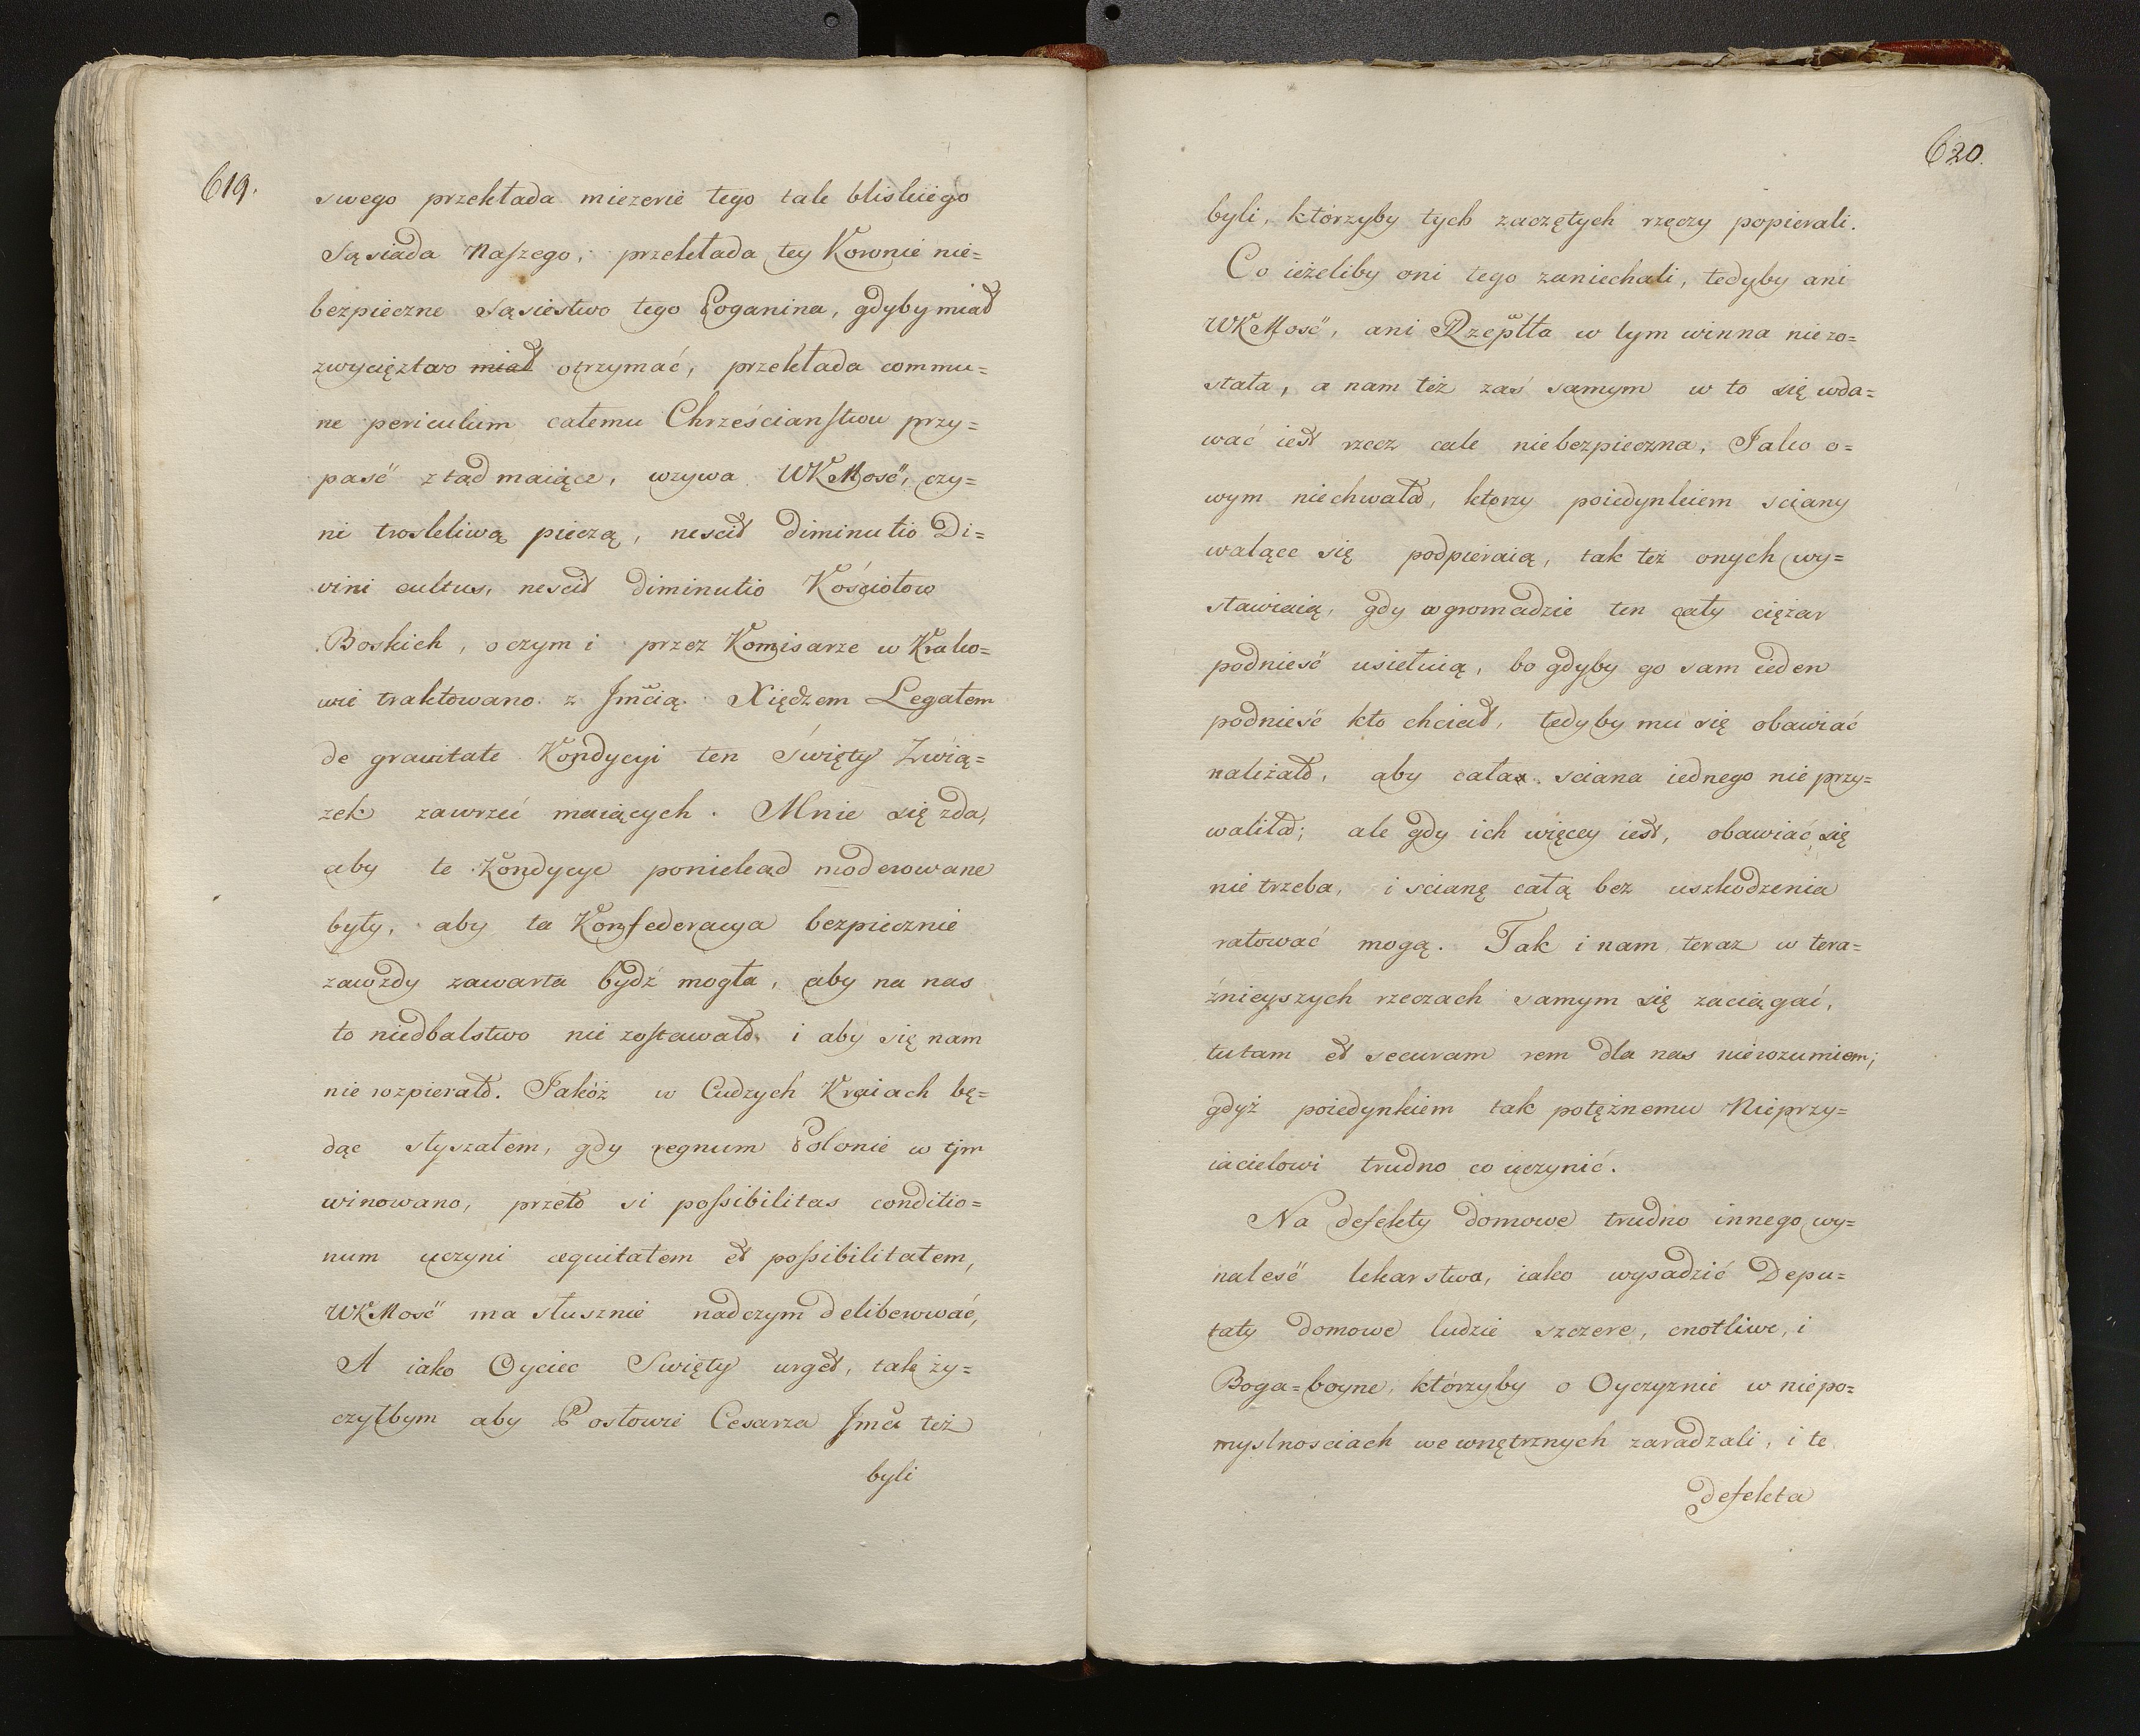 619.
swego przekłada miezerie tego tak bliskiego
Sąsiada Naszego, przekłada tey Koronie nie=
bezpieczne sąsiestwo tego Poganina, gdyby miał
zwycięztwo miał otrzymać, przekłada commu=
ne periculum całemu Chrześcianstwu przy=
paść ztąd maiące, wzywa WKMość, czy=
ni troskliwą pieczą, nescit diminutio Di=
vini cultus, nescit diminutio Kościołow
Boskich, oczym i przez Komisarze w Krako=
wie traktowano z Jmcią Xiędzem Legatem
de gravitate Kondycyi ten Święty Zwią=
zek zawrzeć maiących. Mnie się zda,
aby te Kondycye poniekąd moderowane
były, aby ta Konfederacya bezpiecznie
zawżdy zawarta bydź mogła, aby na nas
to niedbalstwo nie zostawało i aby się nam
nie rozpierało. Jakóż w Cudzych Kraiach bę=
dąc słyszałem, gdy regnum Polonie w tym
winowano, przeto si possibilitas conditio=
num uczyni aequitatem et possibilitatem,
WKMość ma słusznie nadczym deliberować,
A iako Oyciec Swięty urget, tak ży=
czyłbym aby Posłowie Cesarza Jmci też
byli
620.
byli, którzyby tych zaczętych rzeczy popierali.
Co ieżeliby oni tego zaniechali, tedyby ani
WKMość, ani Rzeptta w tym winna niezo=
stała, a nam też zaś samym w to się wda=
wać iest rzecz cale niebezpieczna, Jako o=
wym niechwała, ktorzy poiedynkiem sciany
walące się podpieraią, tak też onych wy=
sławiaią, gdy w gromadzie ten cały ciężar
podnieść usiełuią, bo gdyby go sam ieden
podnieść kto chciał, tedyby mu się obawiać
należało, aby cała sciana iednego nie przy=
waliła; ale gdy ich więcey iest, obawiać się
nie trzeba, i scianę całą bez uszkodzenia
ratować mogą. Tak i nam teraz w tera=
źnieyszych rzeczach samym się zaciągać,
tutam et securam rem dla nas nierozumiem;
gdyż poiedynkiem tak potężnemu Nieprzy=
iacielowi trudno co uczynić.
Na defekty domowe trudno innego wy=
naleść lekarstwa, iako wysadzić Depu=
taty domowe ludzie szczere, cnotliwe, i
Boga=boyne, którzyby o Oyczyznie w niepo=
myslnosciach wewnętrznych zaradzali, i te
defekta